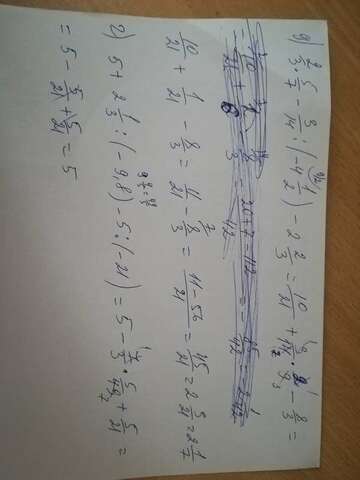 2/3 · 5/7 - 3/14 : (-4 1/2) - 2 2/3 = 10/21 + 3/14 · 2/9 - 8/3 =
10/21 + 1/21 - 8/3 = 11/21 - 8/3 = 11-56/21 = 45/21 = 2 3/21 = 2 1/7
2) 5 + 2 1/3 : (-9,8) - 5 : (-21) = 5 - 7/3 · 5/49 + 5/21 =
= 5 - 5/21 + 5/21 = 5